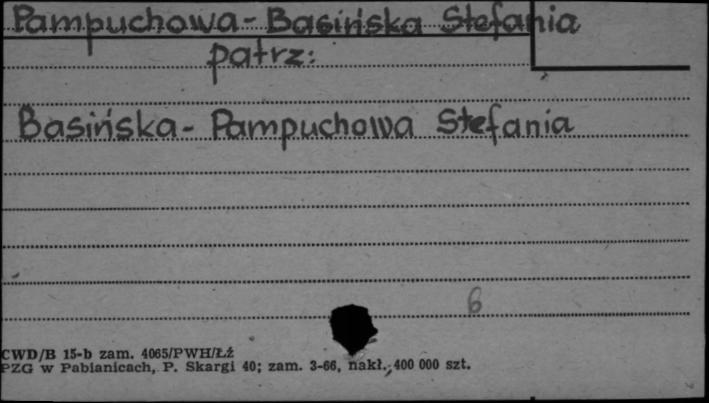 Pampuchowa - Basińska Stefania
patrz:
Basińska - Pampuchowa Stefania
6
CWD/B 15-b zam. 4065/PWH/Łź
PZG w Pabianicach, P. Skargi 40; zam. 3-66, nakł. 400 000 szt.